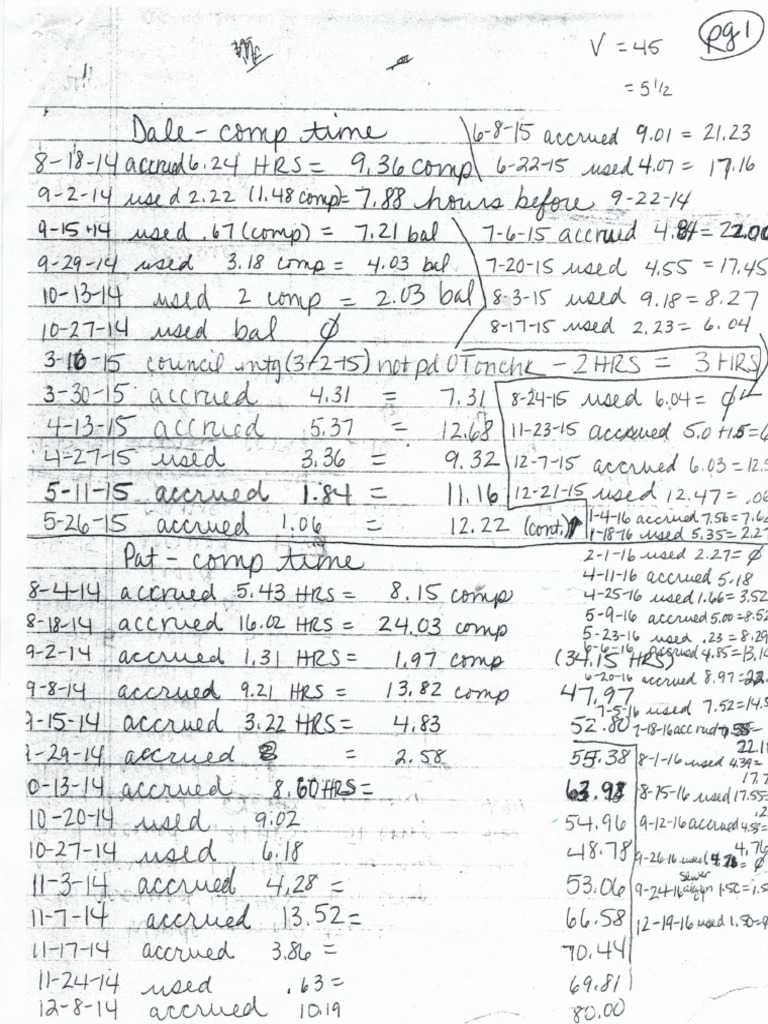 pg 1
V = 45
= 5 1/2
Dale - comp time
8-18-14 accrued 6.24 HRS = 9.36 comp
9-2-14 used 2.22 (1.48 comp) = 7.88 hours before 9-22-14
9-15-14 used .67 (comp) = 7.21 bal
9-29-14 used 3.18 comp = 4.03 bal
10-13-14 used 2 comp = 2.03 bal
10-27-14 used bal Ø
3-16-15 council mtg (3-2-15) not pd OT on chk - 2 HRS = 3 HRS
3-30-15 accrued 4.31 = 7.31
4-13-15 accrued 5.37 = 12.68
4-27-15 used 3.36 = 9.32
5-11-15 accrued 1.84 = 11.16
5-26-15 accrued 1.06 = 12.22 (cont.)
6-8-15 accrued 9.01 = 21.23
6-22-15 used 4.07 = 17.16
7-6-15 accrued 4.84 = 22.00
7-20-15 used 4.55 = 17.45
8-3-15 used 9.18 = 8.27
8-17-15 used 2.23 = 6.04
8-24-15 used 6.04 = Ø
11-23-15 accrued 5.0 + 1.5 = 6
12-7-15 accrued 6.03 = 12.5
12-21-15 used 12.47 = .06
1-4-16 accrued 7.56 = 7.6
1-18-16 used 5.35 = 2.27
2-1-16 used 2.27 = Ø
4-11-16 accrued 5.18
4-25-16 used 1.66 = 3.52
5-9-16 accrued 5.00 = 8.52
5-23-16 used .23 = 8.29
6-6-16 accrued 4.85 = 13.14
6-20-16 accrued 8.97 = 22.
7-5-16 used 7.52 = 14.5
7-18-16 accrued
22.1
8-1-16 used 4.39 =
17.7
8-15-16 used 17.55 =
.2
9-12-16 accrued 4.58 =
4.76
9-26-16 used 4.76 = Ø
sewer
9-24-16 1.50 = 1.5
12-19-16 used 1.50 =
Pat - comp time
8-4-14 accrued 5.43 HRS = 8.15 comp
8-18-14 accrued 16.02 HRS = 24.03 comp
9-2-14 accrued 1.31 HRS = 1.97 comp (34.15 HRS)
9-8-14 accrued 9.21 HRS = 13.82 comp 47.97
9-15-14 accrued 3.22 HRS = 4.83 52.80
9-29-14 accrued = 2.58 55.38
0-13-14 accrued 8.60 HRS = 63.98
10-20-14 used 9.02 54.96
10-27-14 used 6.18 48.78
11-3-14 accrued 4.28 = 53.06
11-7-14 accrued 13.52 = 66.58
11-17-14 accrued 3.86 = 70.44
11-24-14 used .63 = 69.81
12-8-14 accrued 10.19 80.00